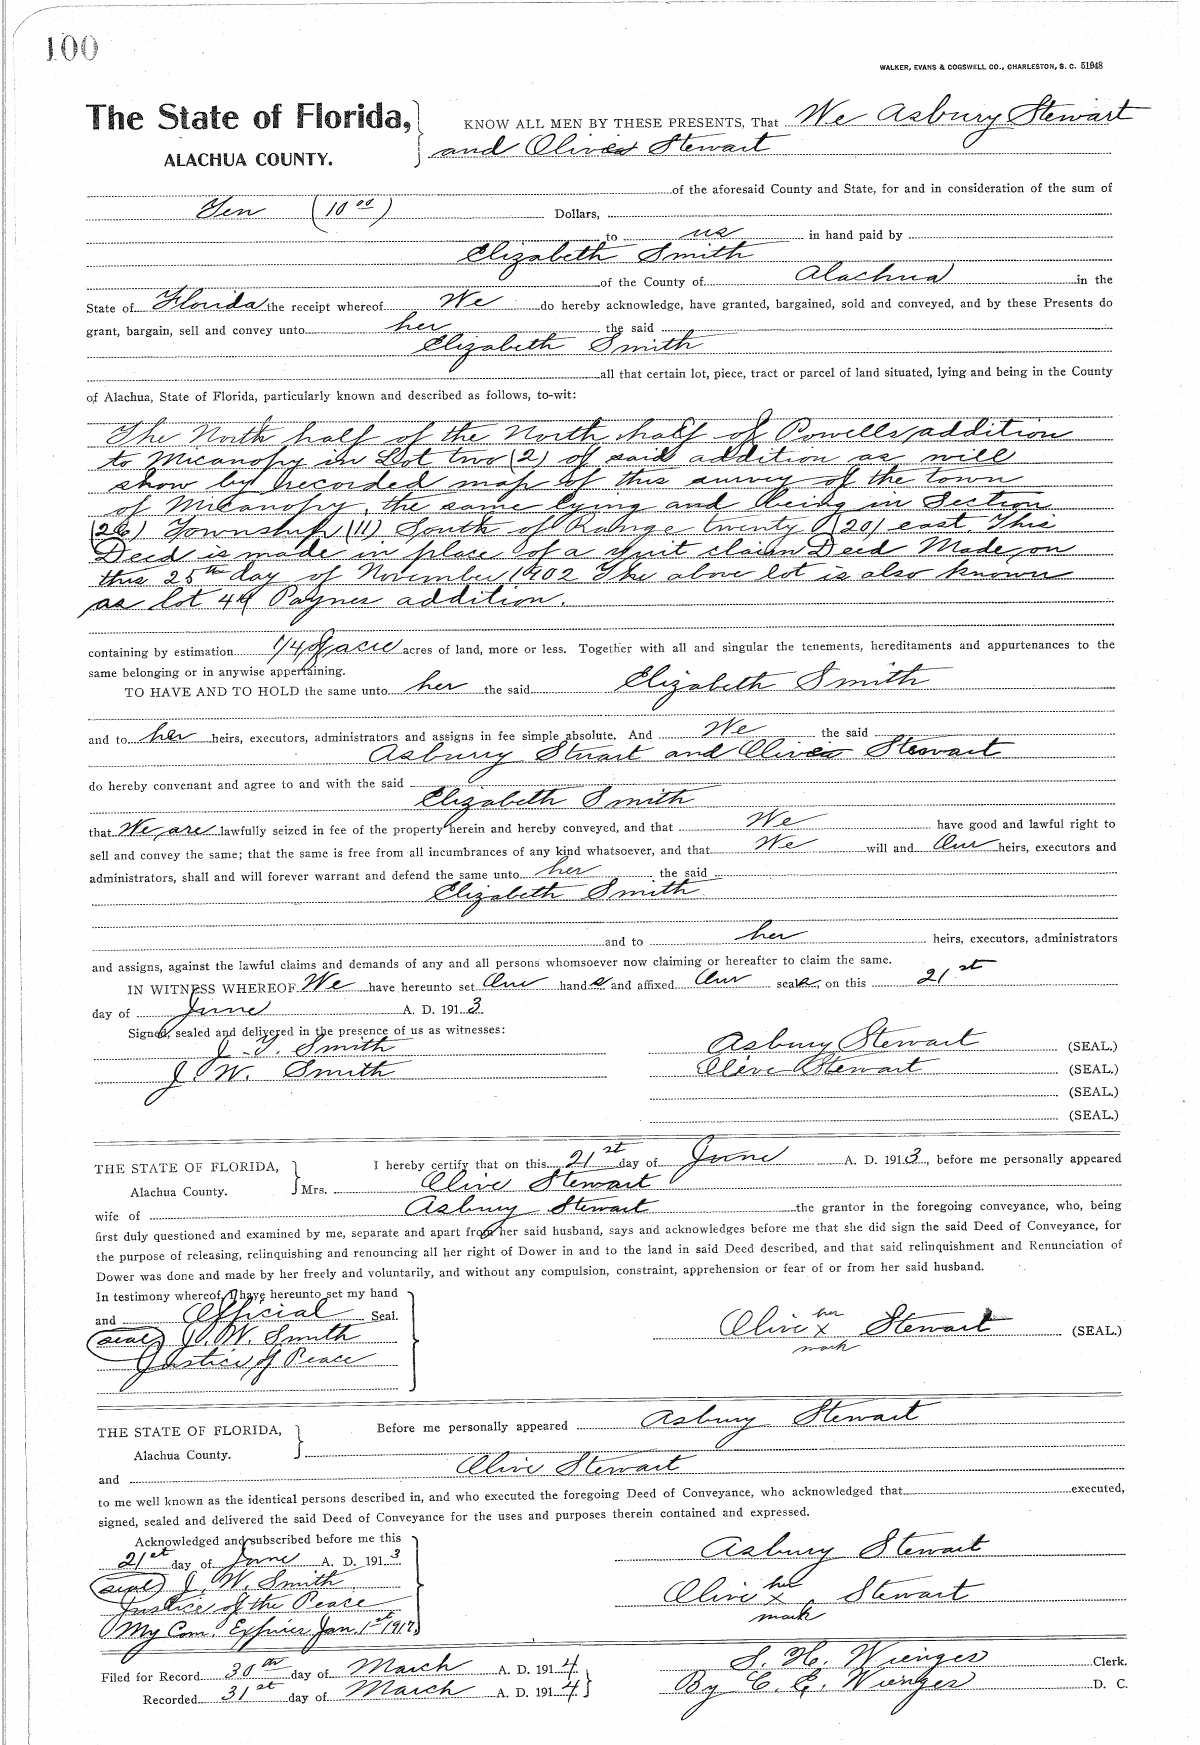 100
WALKER, EVANS & COGSWELL CO., CHARLESTON, S. C. 51948
The State of Florida,
ALACHUA COUNTY.
KNOW ALL MEN BY THESE PRESENTS, That We Asbury Stewart
and Olive Stewart
of the aforesaid County and State, for and in consideration of the sum of
Ten (10 00) Dollars,
to us in hand paid by
Elizabeth Smith
of the County of Alachua in the
State of Florida the receipt whereof We do hereby acknowledge, have granted, bargained, sold and conveyed, and by these Presents do
grant, bargain, sell and convey unto her the said
Elizabeth Smith
all that certain lot, piece, tract or parcel of land situated, lying and being in the County
of Alachua, State of Florida, particularly known and described as follows, to-wit:
The North half of the North half of Powells addition
to Micanopy in Lot two (2) of said addition as will
show by recorded map of this survey of the town
of Micanopy, the same lying and being in Section
(26) Township (11) South of Range twenty (20) east This
Deed is made in place of a Quit claim Deed Made on
this 25th day of November 1902 The above lot is also known
as lot 44 Paynes addition.
containing by estimation 1/4 of acre acres of land, more or less. Together with all and singular the tenements, hereditaments and appurtenances to the
same belonging or in anywise appertaining.
TO HAVE AND TO HOLD the same unto her the said Elizabeth Smith
and to her heirs, executors, administrators and assigns in fee simple absolute. And We the said
Asbury Stuart and Olive Stewart
do hereby convenant and agree to and with the said
Elizabeth Smith
that We are lawfully seized in fee of the property herein and hereby conveyed, and that We have good and lawful right to
sell and convey the same; that the same is free from all incumbrances of any kind whatsoever, and that We will and Our heirs, executors and
administrators, shall and will forever warrant and defend the same unto her the said
Elizabeth Smith
and to her heirs, executors, administrators
and assigns, against the lawful claims and demands of any and all persons whomsoever now claiming or hereafter to claim the same.
IN WITNESS WHEREOF We have hereunto set Our hand s and affixed Our seals, on this 21st
day of June A. D. 1913.
Signed, sealed and delivered in the presence of us as witnesses:
J. Y. Smith
J W. Smith
Asbury Stewart (SEAL.)
Olive Stewart (SEAL.)
(SEAL.)
(SEAL.)
THE STATE OF FLORIDA,
Alachua County.
I hereby certify that on this 21st day of June A. D. 1913, before me personally appeared
Mrs. Olive Stewart
wife of Asbury Stewart the grantor in the foregoing conveyance, who, being
first duly questioned and examined by me, separate and apart from her said husband, says and acknowledges before me that she did sign the said Deed of Conveyance, for
the purpose of releasing, relinquishing and renouncing all her right of Dower in and to the land in said Deed described, and that said relinquishment and Renunciation of
Dower was done and made by her freely and voluntarily, and without any compulsion, constraint, apprehension or fear of or from her said husband.
In testimony whereof, I have hereunto set my hand
and Official Seal.
(seal) J. W. Smith
Justice of Peace
her
Olive x Stewart (SEAL.)
mark
THE STATE OF FLORIDA,
Alachua County.
Before me personally appeared Asbury Stewart
and Olive Stewart
to me well known as the identical persons described in, and who executed the foregoing Deed of Conveyance, who acknowledged that executed,
signed, sealed and delivered the said Deed of Conveyance for the uses and purposes therein contained and expressed.
Acknowledged and subscribed before me this
21st day of June A. D. 1913
(seal) J. W. Smith
Justice of the Peace
My Com. Expires Jan. 1st 1917
Asbury Stewart
her
Olive x Stewart
mark
Filed for Record 30th day of March A. D. 1914
Recorded 31st day of March A. D. 1914
S. H. Wienges Clerk.
By C. E. Wienges D. C.